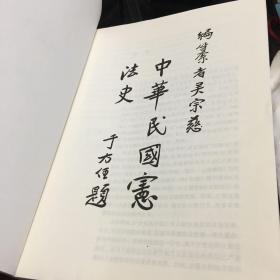 編纂者吴宗慈
中華民國憲
法史
于右任題